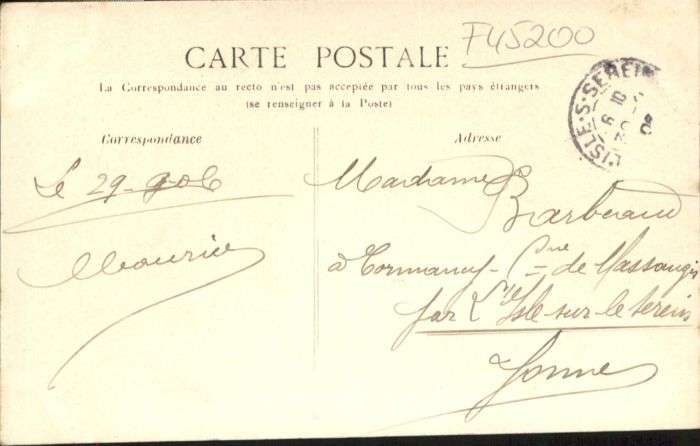 F45200
CARTE POSTALE
La Correspondance au recto n'est pas acceptée par tous les pays étrangers
(se renseigner à la Poste)
L'ISLE-S-SEREIN
Correspondance
Adresse
Le 29-9-06
Maurice
Madame Barbeaud
à Tormancy - Cne de Massangis
par L'Isle-sur-le-Serein
Yonne